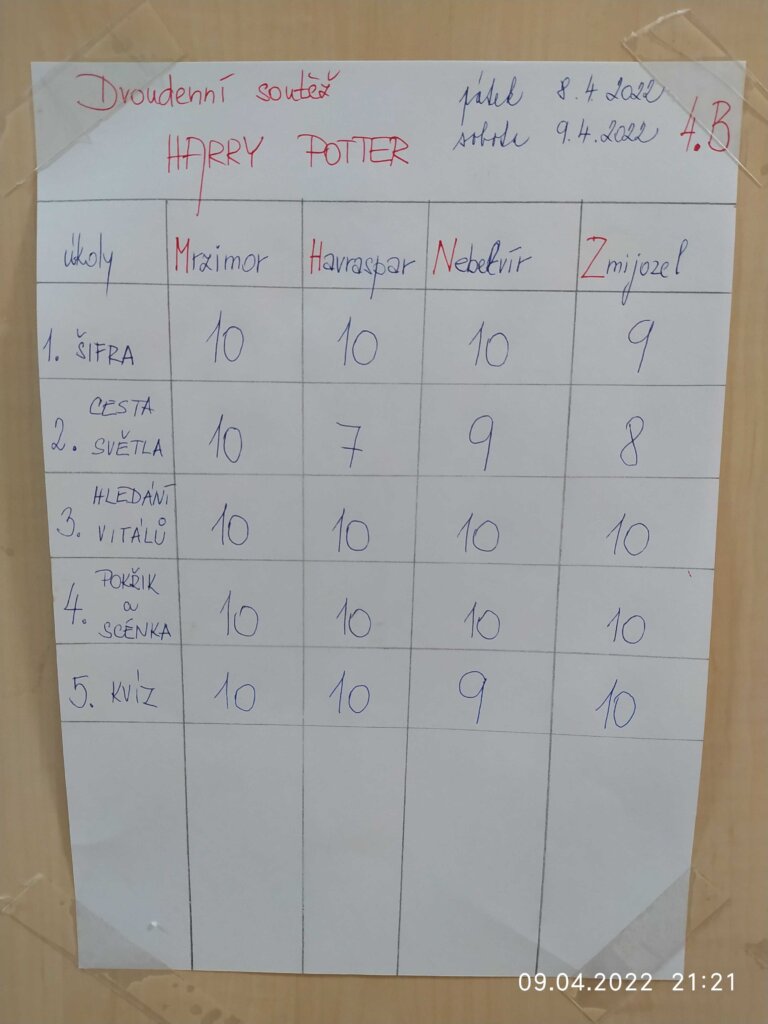 Dvoudenní soutěž
HARRY POTTER
pátek 8.4.2022
sobota 9.4.2022
4.B
úkoly Mrzimor Havraspar Nebelvír Zmijozel
1. ŠIFRA 10 10 10 9
2. CESTA
SVĚTLA 10 7 9 8
3. HLEDÁNÍ
VITÁLŮ 10 10 10 10
4. POKŘIK
a
SCÉNKA 10 10 10 10
5. KVÍZ 10 10 9 10
09.04.2022 21:21